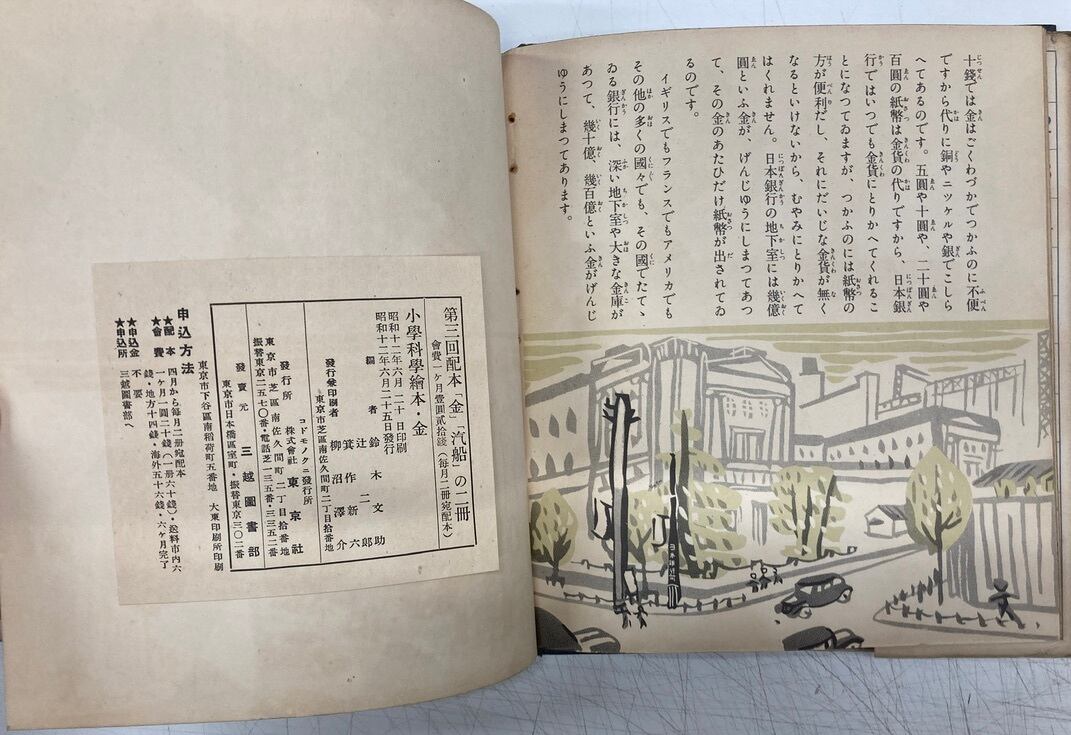 十錢では金はごくわづかでつかふのに不便
ですから代りに銅やニツケルや銀でこしら
へてあるのです。五圓や十圓や、二十圓や
百圓の紙幣は金貨の代りですから、日本銀
行ではいつでも金貨にとりかへてくれるこ
とになつてゐますが、つかふのには紙幣の
方が便利だし、それにだいじな金貨が無く
なるといけないから、むやみにとりかへて
はくれません。日本銀行の地下室には幾億
圓といふ金が、げんじゆうにしまつてあつ
て、その金のあたひだけ紙幣が出されてゐ
るのです。
イギリスでもフランスでもアメリカでも
その他の多くの國々でも、その國でたてゝ
ゐる銀行には、深い地下室や大きな金庫が
あつて、幾十億、幾百億といふ金がげんじ
ゆうにしまつてあります。
第三回配本「金」「汽船」の二冊
會費一ケ月壹圓貳拾錢(毎月二冊宛配本)
小學科學繪本・金
昭和十二年六月二十日印刷
昭和十二年六月二十五日發行
編者 鈴木文助
辻二郎
箕作新六
發行兼印刷者 柳沼澤介
東京市芝區南佐久間町二丁目拾番地
コドモノクニ發行所
發行所 株式會社 東京社
東京市芝區南佐久間町二丁目拾番地
振替東京二五七〇番・電話芝一三五番・三三五二番
發賣元 三越圖書部
東京市日本橋區室町・振替東京三〇二番
東京市下谷區南稻荷町五番地 大東印刷所印刷
申込方法
★配本 四月から毎月二冊宛配本
★會費 一ケ月一圓二十錢(一冊六十錢)・送料市内六
錢・地方十四錢・海外五十六錢・六ケ月完了
★申込金 不要
★申込所 三越圖書部へ